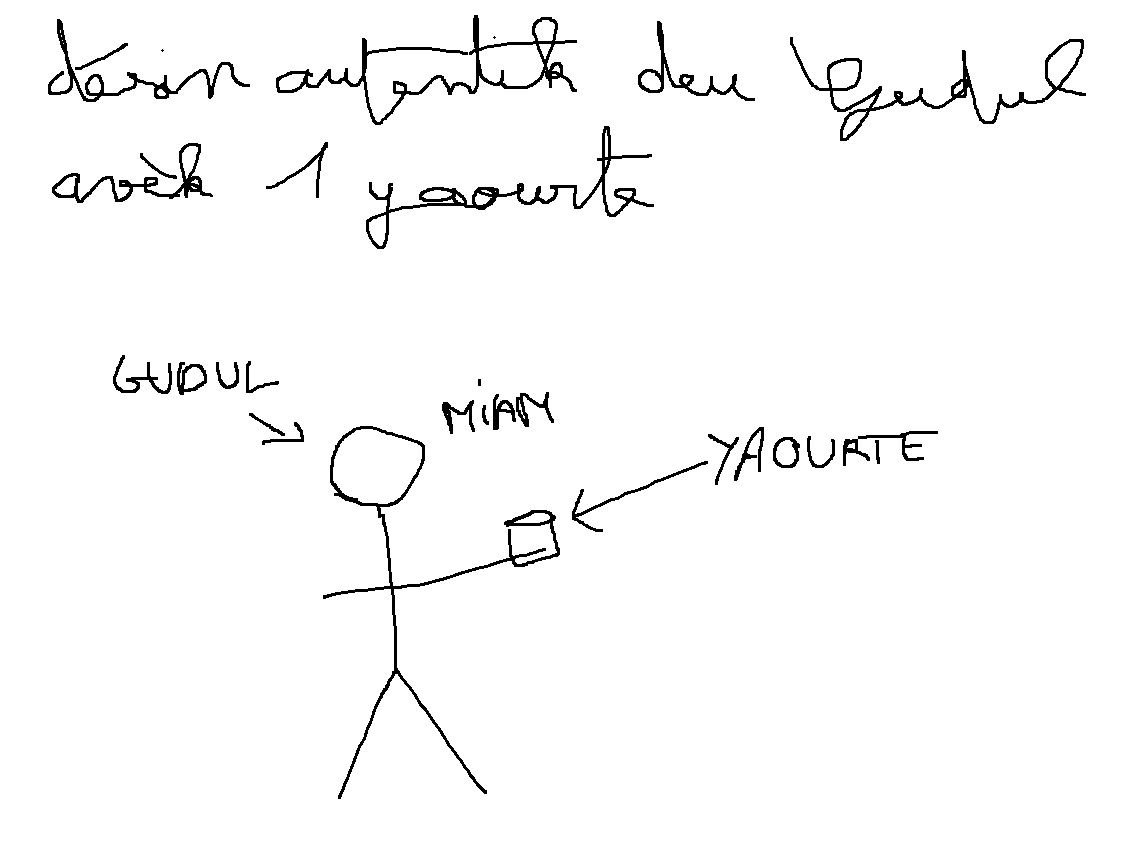 désin autentik deu Gudul
avèk 1 yaourte
GUDUL
MiAM
YAOURTE